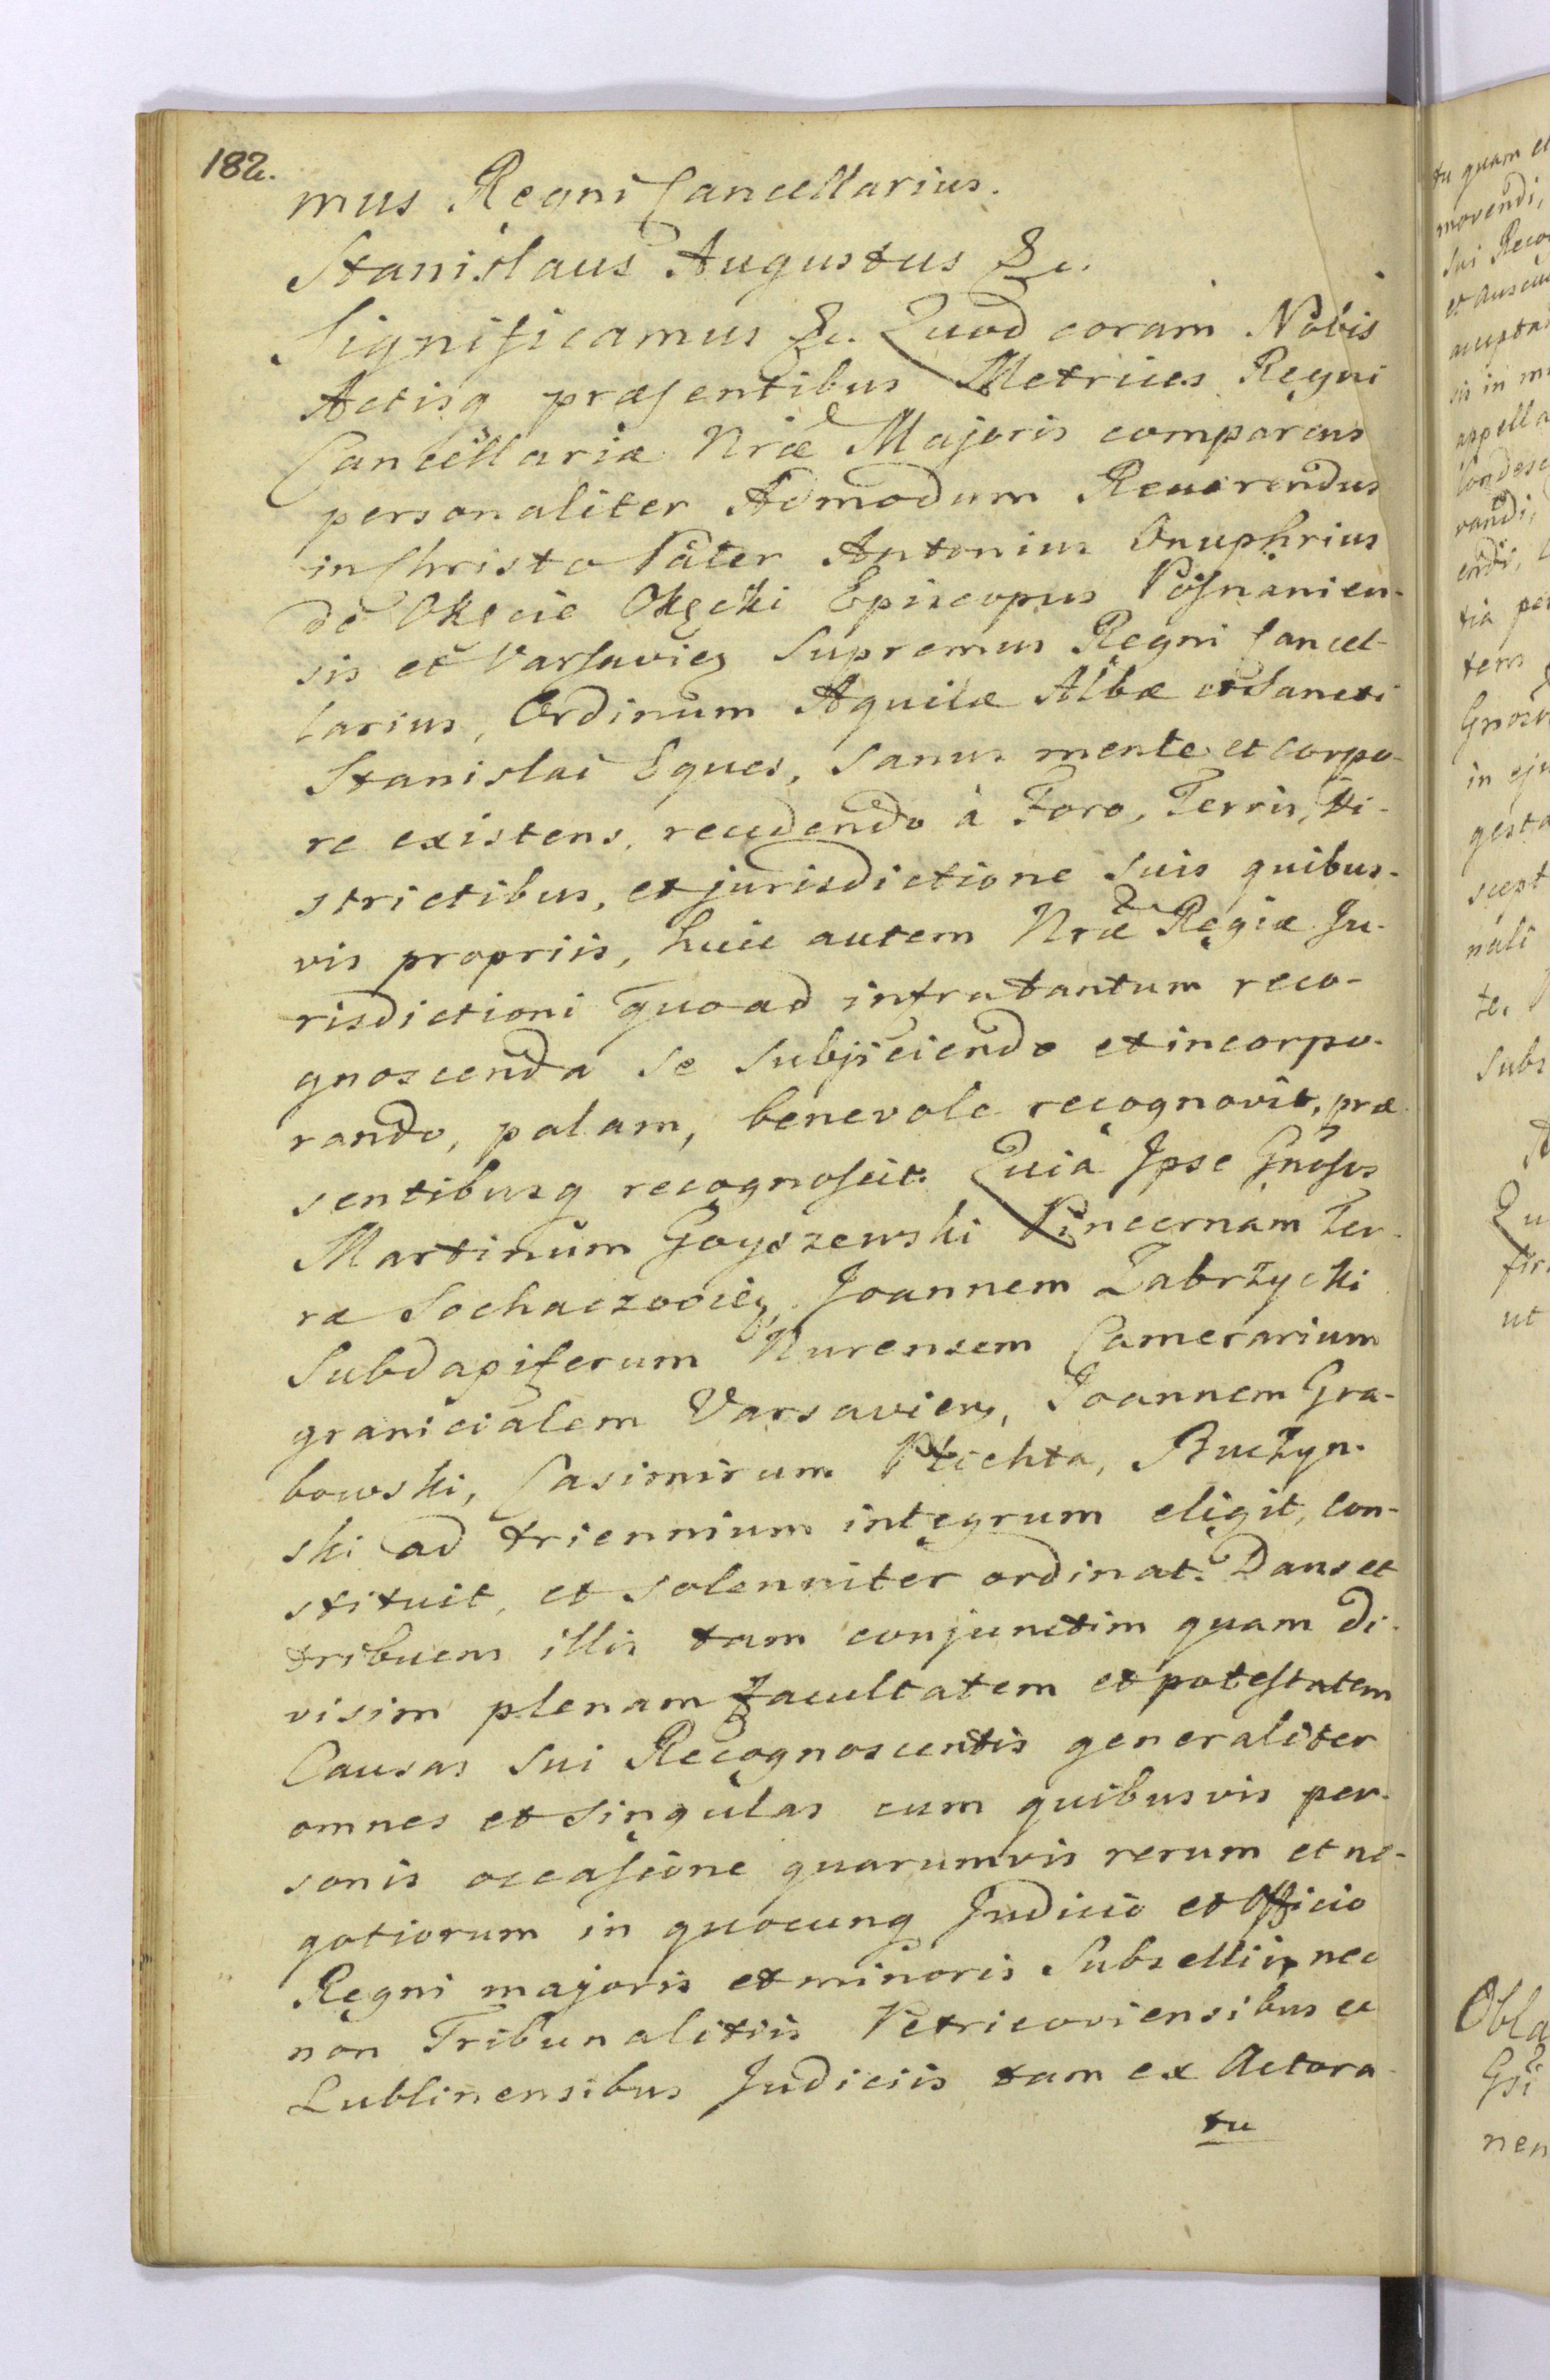 182.
mus Regni Cancellarius.
Stanislaus Augustus &c.
Significamus &c. Quod coram Nobis
Actisq præsentibus Metrices Regni
Cancellariæ Nræ Majoris comparens
personaliter Admodum Reverendus
in Christo Pater Antonius Onuphrius
de Okęcie Okęcki Episcopus Posnanien-
sis et Varsavieɳ Supremus Regni Cancel-
larius, Ordinum Aquilæ Albæ et Sancti
Stanislai Eques, sanus mente et corpo-
re existens, recedendo à Foro, Terris, Di-
strictibus, et jurisdictione suis quibus-
vis propriis, huic autem Nræ Regiæ Ju-
risdictioni quoad infra tantum reco-
gnoscenda se subjiciendo et incorpo-
rando, palam, benevole recognovit, præ
sentibusq recognoscit. Quia Ipse Gnosos
Martinum Goyszewski Pincernam Ter-
ræ Sochaczovieɳ, Joannem Zabrzycki
Subdapiferum Nurensem Camerarium
granicialem Varsavieɳ, Joannem Gra-
bowski, Casimirum Plichta, Buczyn-
ski ad triennium integrum eligit, con-
stituit, et solenniter ordinat. Dans et
tribuens illis tam conjunctim quam di-
visim plenam facultatem et potestatem
Causas sui Recognoscentis generaliter
omnes et singulas cum quibusvis per-
sonis occasione quarumvis rerum et ne-
gotiorum in quocunq Judicio et Officio
Regni majoris et minoris Subsellii, nec
non Tribunalitiis Petricoviensibus et
Lublinensibus Judiciis tam ex Actora-
tu
tu quam
movendi,
sui Reco
appella
randi,
tia per
tem
in eju
gesta
te.
Subs
Qu
ut
Obla
nen